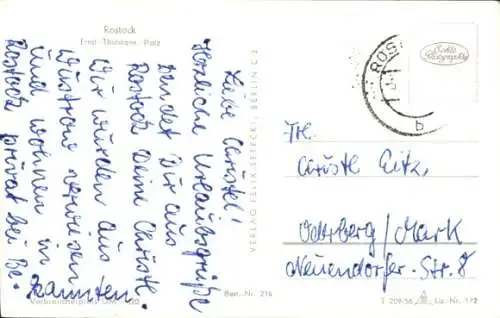 Rostock
Ernst-Thälmann-Platz
Liebe Christel!
Herzliche Urlaubsgrüße
sendet Dir aus
Rostock Deine Christe.
Wir wurden aus
Wustrow verwiesen
und wohnen in
Rostock privat bei Be-
kannten.
VERLAG FELIX SETECKI, BERLIN C 2
Best.-Nr. 216
ROS
b
Echte Photographie
Frl.
Christl Eitz,
Oderberg/Mark
Neuendorfer-Str. 8
T 209/56
Liz.-Nr. 172